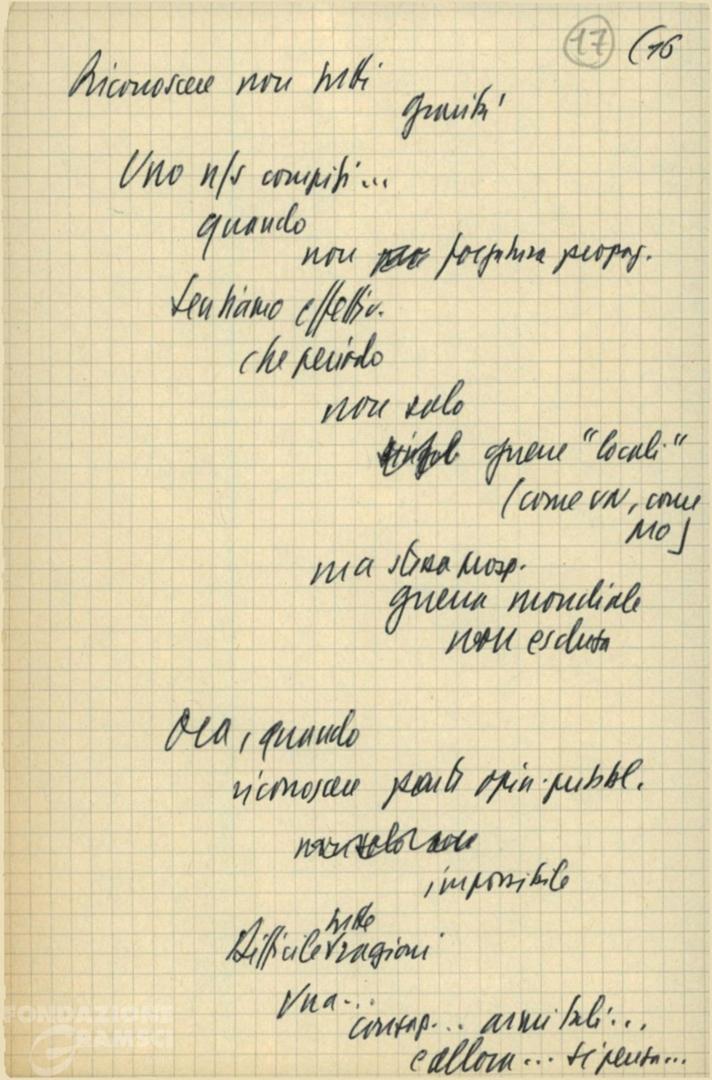 17 (16
Riconoscere non tutti
gravità
Uno n/s compiti...
quando
non forzatura propag.
sentiamo effettiv.
che periodo
non solo
guerre "locali"
(come VN, come
MO)
ma stessa prosp.
guerra mondiale
non esclusa
Ora, quando
riconoscere opin. pubbl.
impossibile
tutte
Difficile ragioni
Una...
consap... armi tali...
e allora... si pensa...
FONDAZIONE
GRAMSCI